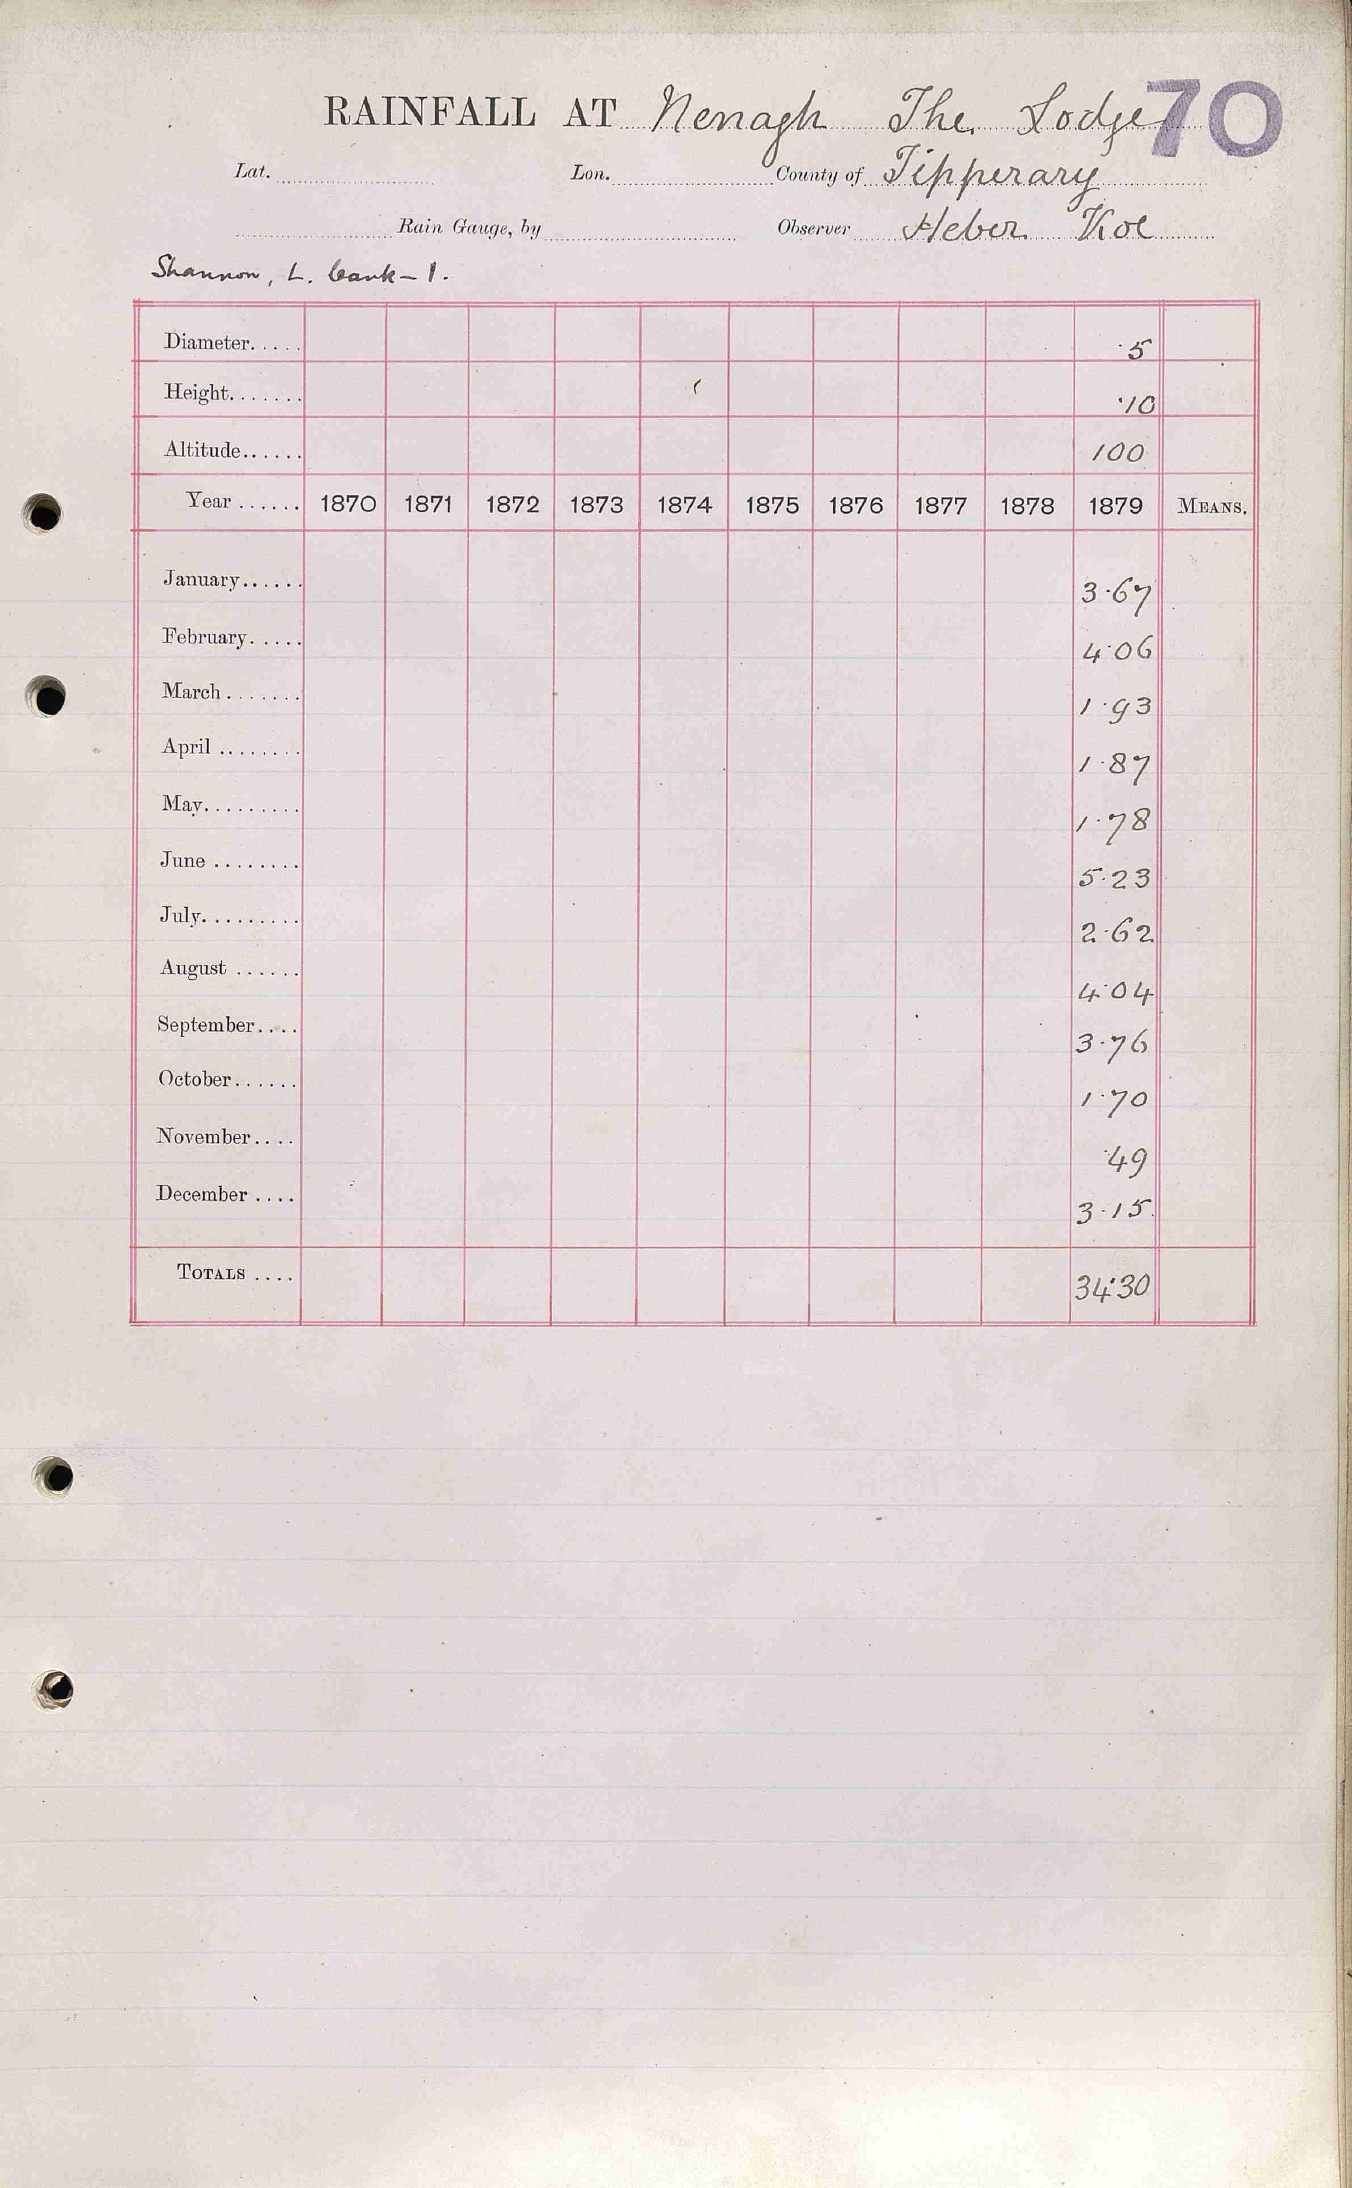 70
RAINFALL AT Nenagh The Lodge
Lat. Lon. County of Tipperary
Rain Gauge, by Observer Heber Koe
Shannon, L. bank-1.
Diameter..... 5
Height....... ·10
Altitude...... 100
Year ...... 1870 1871 1872 1873 1874 1875 1876 1877 1878 1879 MEANS.
January...... 3·67
February..... 4·06
March....... 1·93
April ........ 1·87
May......... 1·78
June ........ 5·23
July......... 2·62
August ...... 4·04
September.... 3·76
October...... 1·70
November.... ·49
December .... 3·15
TOTALS .... 34·30